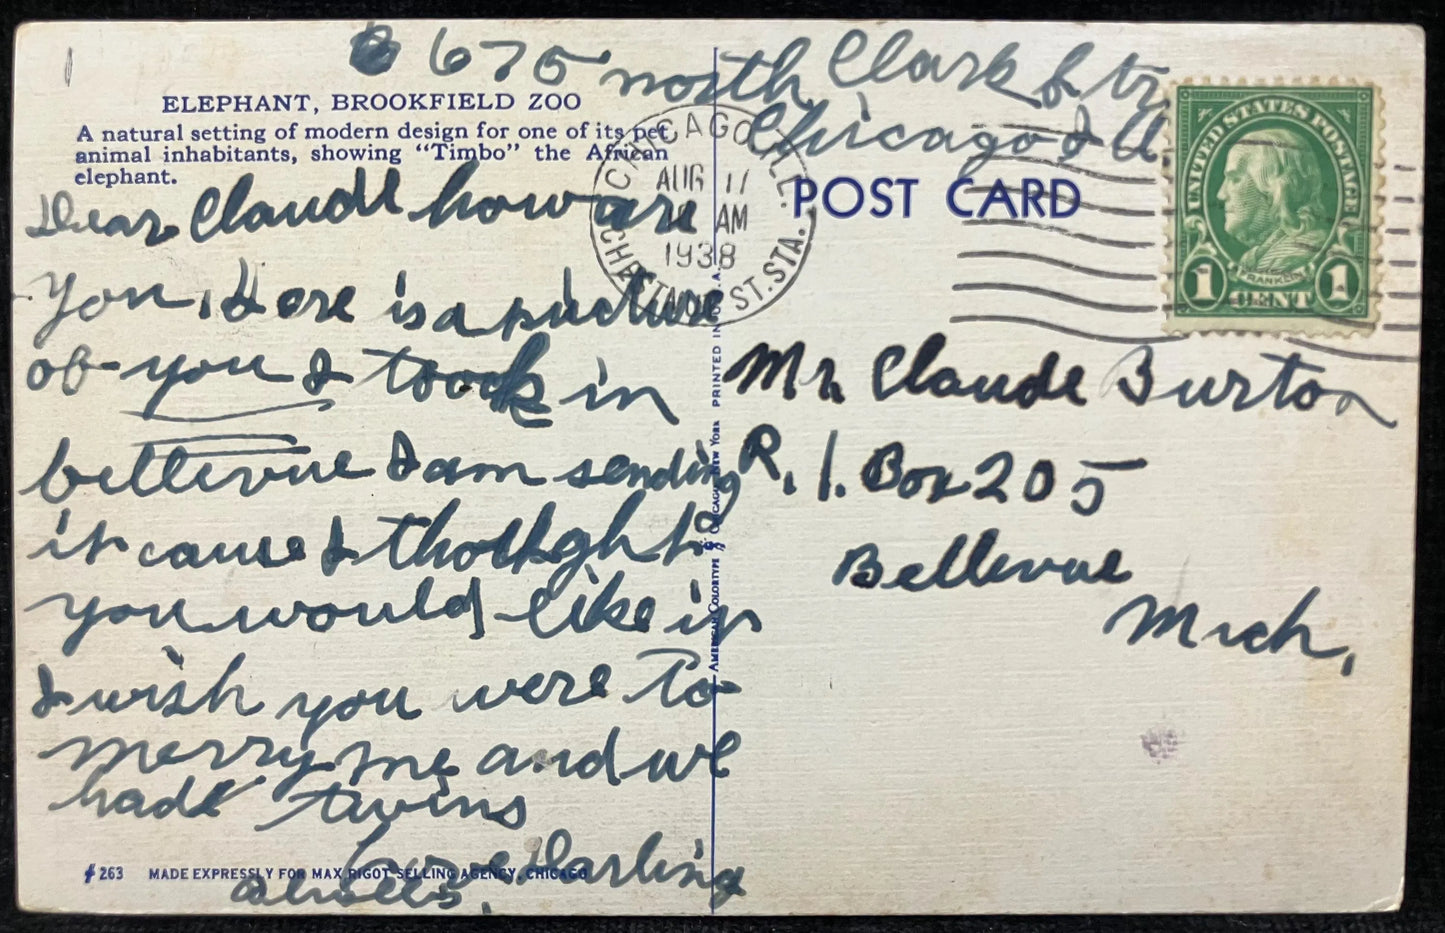 675 north Clark Str
Chicago Ill
ELEPHANT, BROOKFIELD ZOO
A natural setting of modern design for one of its pet
animal inhabitants, showing "Timbo" the African
elephant.
CHICAGO, ILL.
AUG 11
AM
1938
CHESTNUT ST. STA.
POST CARD
UNITED STATES POSTAGE
FRANKLIN
1 CENT 1
Dear Claude how are
you, Here is a picture
of you I toock in
bellevue I am sending
it cause I thought
you would like it
I wish you were To
merry me and we
hadt twins
Love Darling
always.
Mr. Claude Burton
R. 1. Box 205
Bellevue
Mich,
AMERICAN COLORTYPE CO. CHICAGO NEW YORK PRINTED IN U. S. A.
263 MADE EXPRESSLY FOR MAX RIGOT SELLING AGENCY, CHICAGO